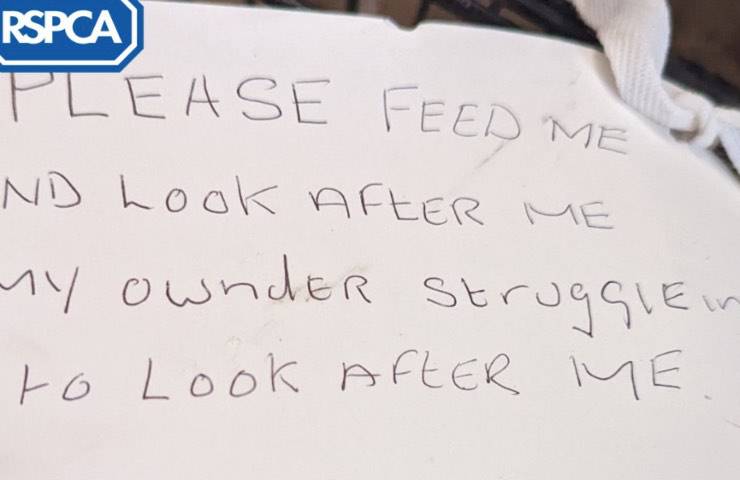 RSPCA
PLEASE FEED ME
ND LOOK AFTER ME
MY OWNdER StruggLEin
to LOOK AFTER ME.